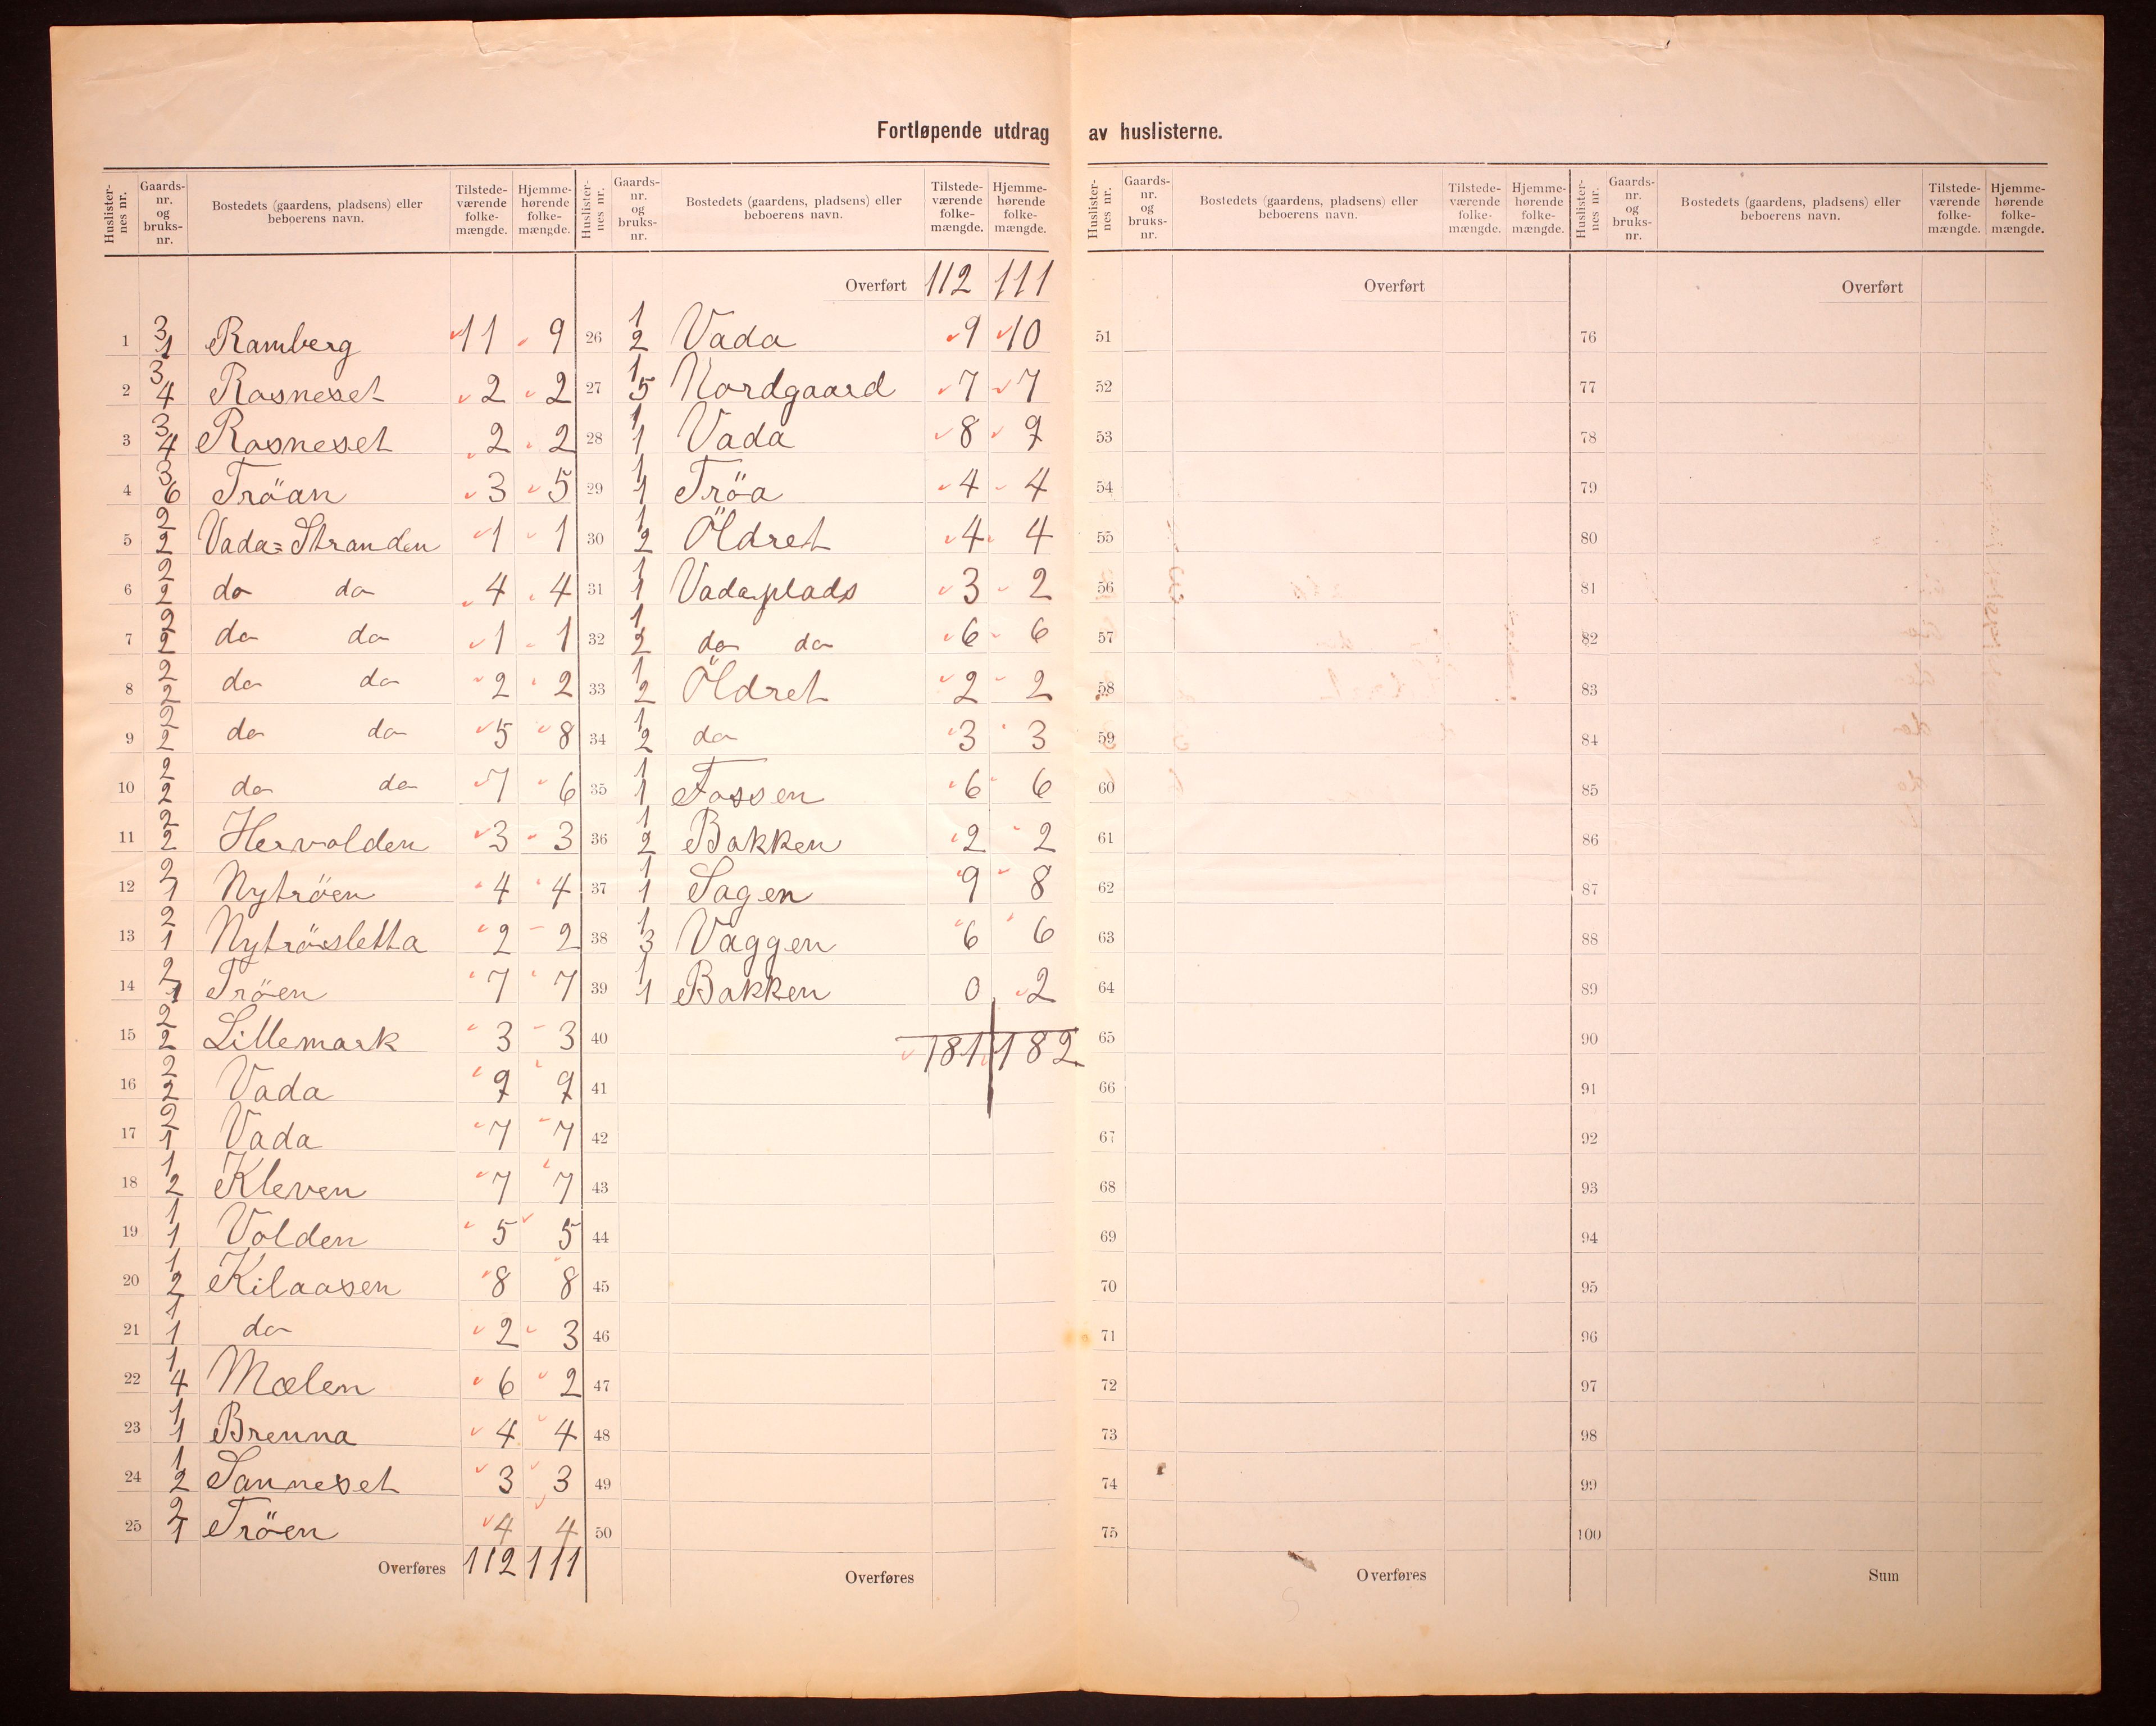 Fortløpende utdrag av huslisterne.
Huslisternes nr. Gaards-nr. og bruks-nr. Bostedets (gaardens, pladsens) eller beboerens navn. Tilstede-værende folke-mængde. Hjemme-hørende folke-mængde.
1 3/1 Ramberg 11 9
2 3/4 Rosneset 2 2
3 3/4 Rosneset 2 2
4 3/6 Tröan 3 5
5 2/2 Vada=Stranden 1 1
6 2/2 do do 4 4
7 2/2 do do 1 1
8 2/2 do do 2 2
9 2/2 do do 5 8
10 2/2 do do 7 6
11 2/2 Hervolden 3 3
12 2/1 Nytröen 4 4
13 2/1 Nytrösletta 2 2
14 2/1 Tröen 7 7
15 2/2 Lillemark 3 3
16 2/2 Vada 9 9
17 2/1 Vada 7 7
18 1/2 Kleven 7 7
19 1/1 Volden 5 5
20 1/2 Kilaasen 8 8
21 1/1 do 2 3
22 1/4 Mælen 6 2
23 1/1 Brenna 4 4
24 1/2 Sanneset 3 3
25 2/1 Tröen 4 4
Overføres 112 111
Huslisternes nr. Gaards-nr. og bruks-nr. Bostedets (gaardens, pladsens) eller beboerens navn. Tilstede-værende folke-mængde. Hjemme-hørende folke-mængde.
Overført 112 111
26 1/2 Vada 9 10
27 1/5 Nordgaard 7 7
28 1/1 Vada 8 9
29 1/1 Tröa 4 4
30 1/2 Öldret 4 4
31 1/1 Vadaplads 3 2
32 1/2 do do 6 6
33 1/2 Öldret 2 2
34 1/2 do 3 3
35 1/1 Fossen 6 6
36 1/2 Bakken 2 2
37 1/1 Sagen 9 8
38 1/3 Vaggen 6 6
39 1/1 Bakken 0 2
40 181 182
41
42
43
44
45
46
47
48
49
50
Overføres
Huslisternes nr. Gaards-nr. og bruks-nr. Bostedets (gaardens, pladsens) eller beboerens navn. Tilstede-værende folke-mængde. Hjemme-hørende folke-mængde.
Overført
51
52
53
54
55
56
57
58
59
60
61
62
63
64
65
66
67
68
69
70
71
72
73
74
75
Overføres
Huslisternes nr. Gaards-nr. og bruks-nr. Bostedets (gaardens, pladsens) eller beboerens navn. Tilstede-værende folke-mængde. Hjemme-hørende folke-mængde.
Overført
76
77
78
79
80
81
82
83
84
85
86
87
88
89
90
91
92
93
94
95
96
97
98
99
100
Sum